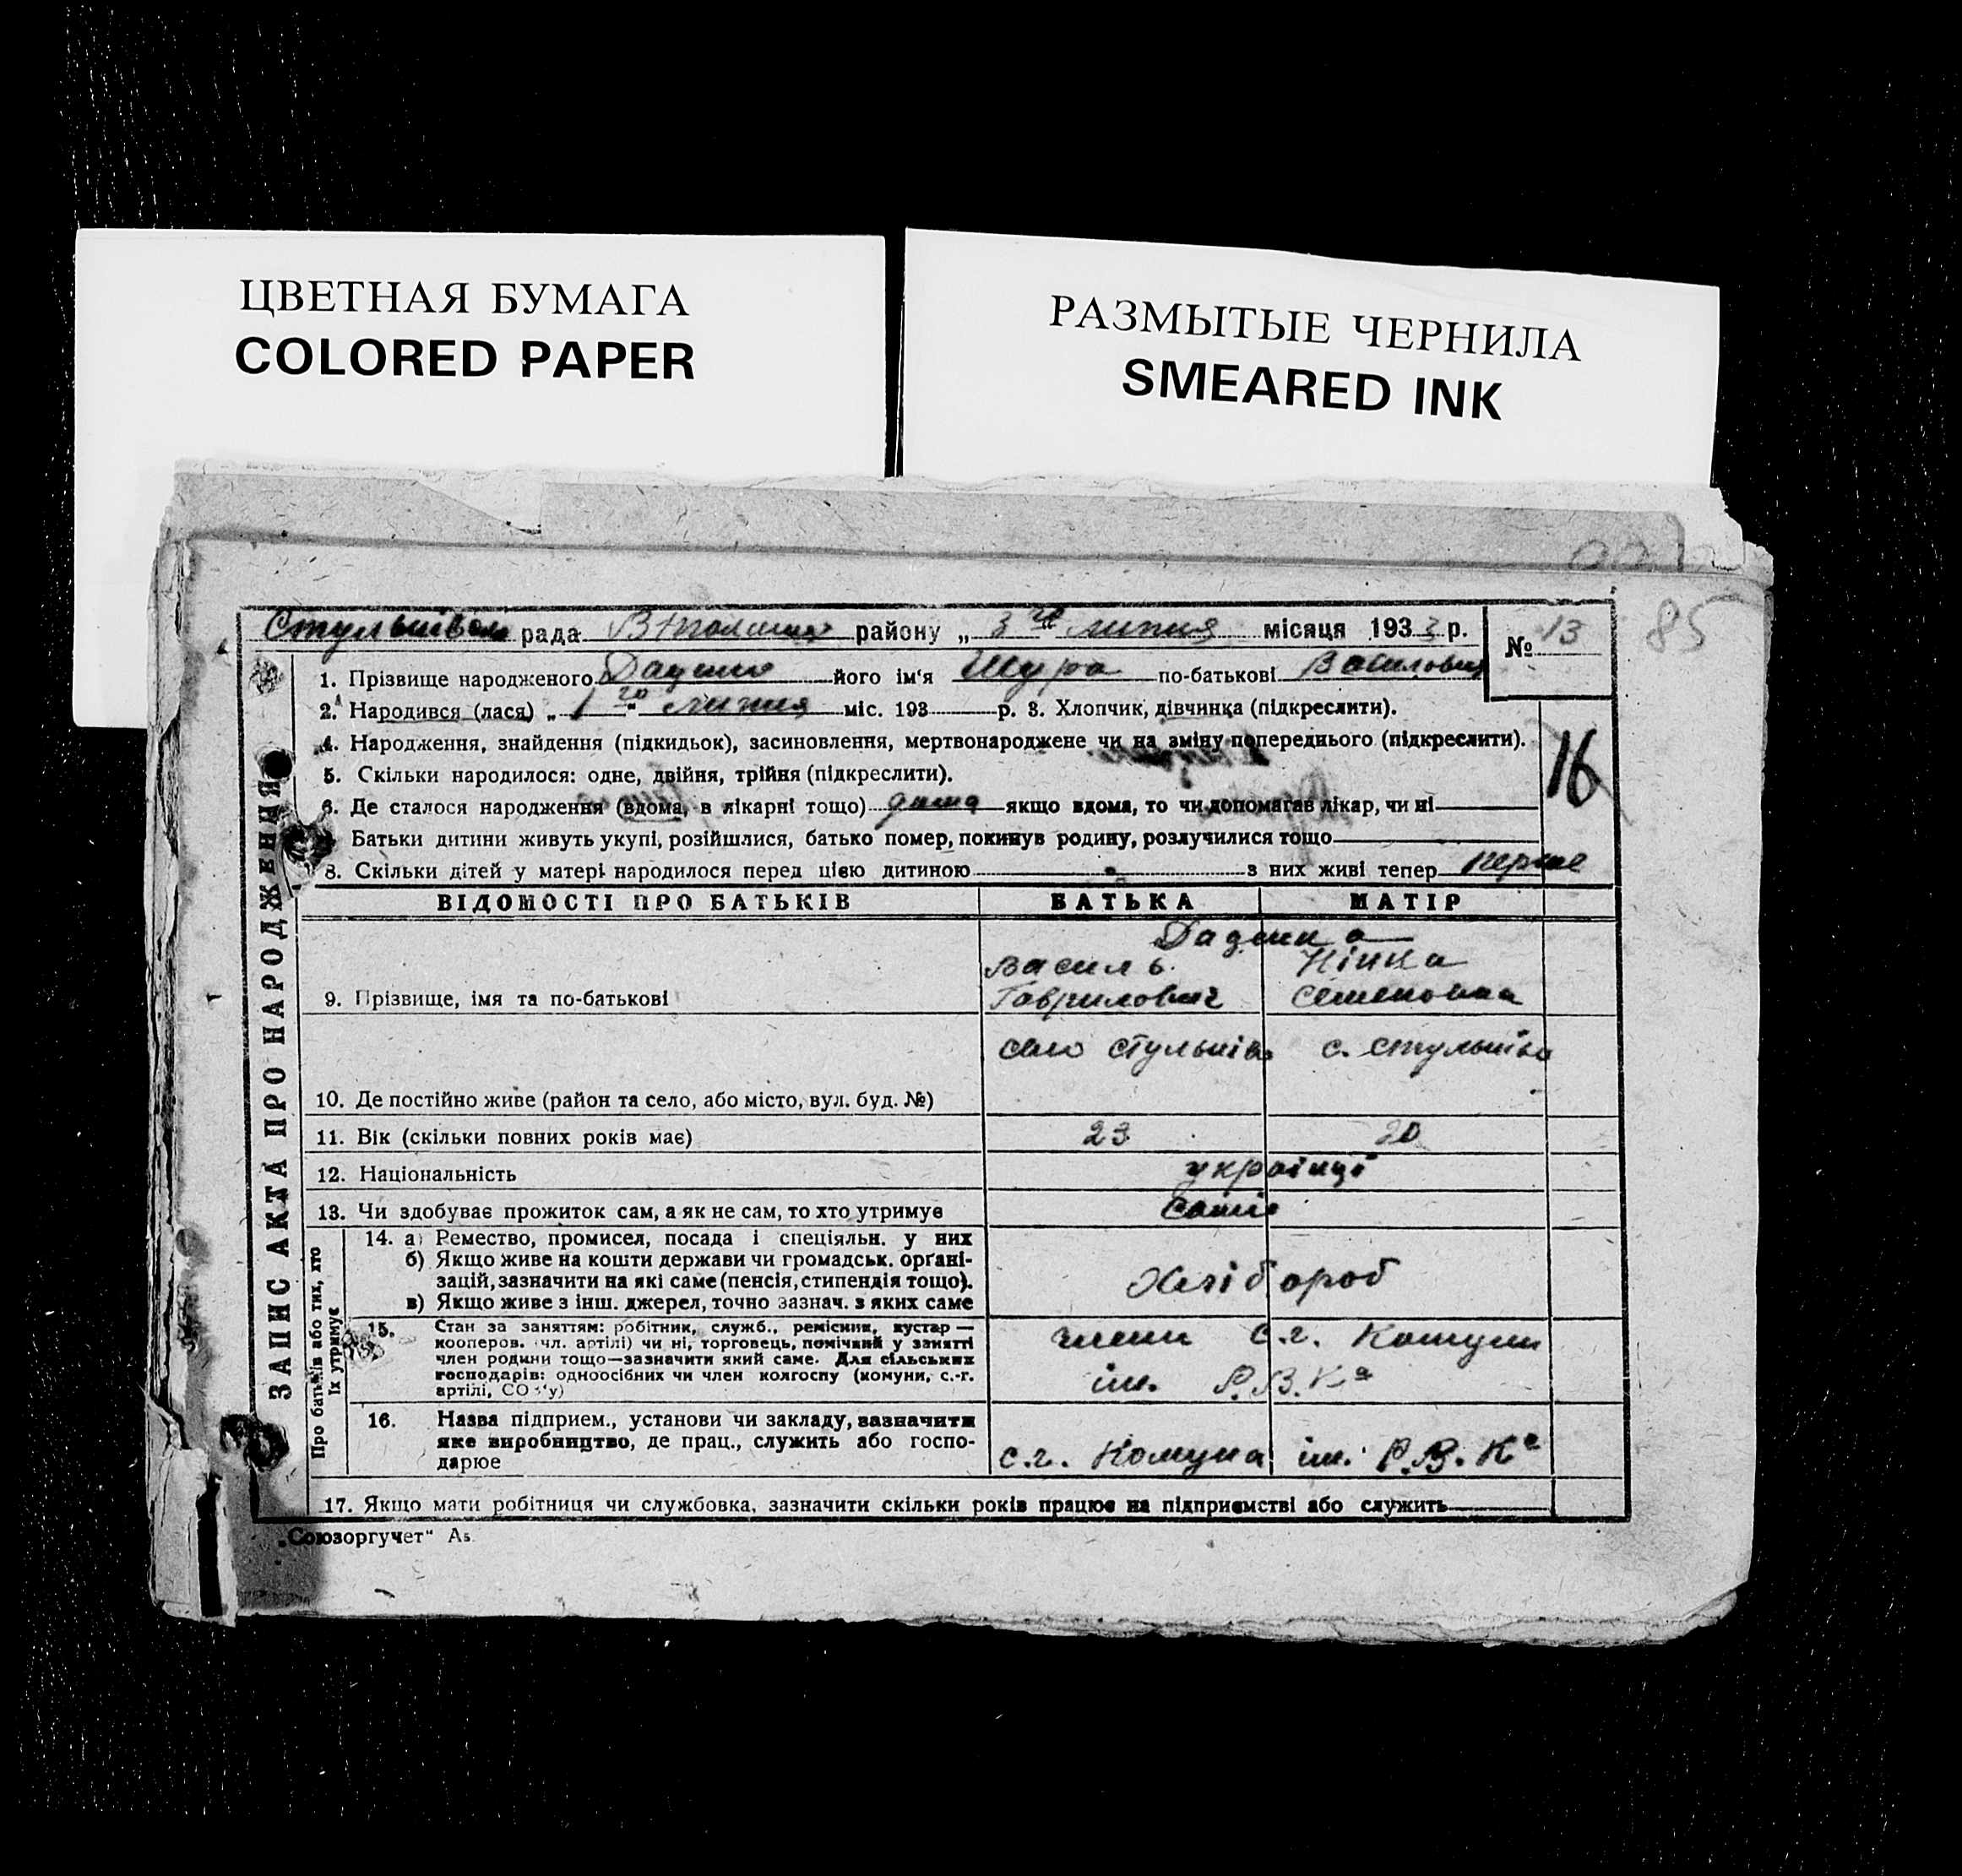 ЦВЕТНАЯ БУМАГА
COLORED PAPER
РАЗМЫТЫЕ ЧЕРНИЛА
SMEARED INK
85
рада району „ 3 липня місяця 1933 р.
№ 13
1. Прізвище народженого його ім‘я Шура по-батькові
2. Народився (лася) „ 1го “ липня міс. 193 р. 3. Хлопчик, дівчинка (підкреслити).
4. Народження, знайдення (підкидьок), засиновлення, мертвонароджене чи на зміну попереднього (підкреслити).
16
5. Скільки народилося: одне, двійня, трійня (підкреслити).
6. Де сталося народження (вдома, в лікарні тощо) дома якщо вдома, то чи допомагав лікар, чи ні
Батьки дитини живуть укупі, розійшлися, батько помер, покинув родину, розлучилися тощо
8. Скільки дітей у матері народилося перед цією дитиною з них живі тепер перше
ЗАПИС АКТА ПРО НАРОДЖЕННЯ
ВІДОМОСТІ ПРО БАТЬКІВ БАТЬКА МАТІР
Василь Нінка
9. Прізвище, імя та по-батькові Гаврилович Семеновна
село Стульнів с. Стульніва
10. Де постійно живе (район та село, або місто, вул. буд. №)
11. Вік (скільки повних років має) 23 20
12. Національність українці
13. Чи здобуває прожиток сам, а як не сам, то хто утримує самі
Про батьків або тих, хто їх утримує
14. а) Ремество, промисел, посада і спеціяльн. у них
б) Якщо живе на кошти держави чи громадськ. органі-
зацій, зазначити на які саме (пенсія, стипендія тощо).
в) Якщо живе з інш. джерел, точно зазнач. з яких саме
Хлібороб
15. Стан за заняттям: робітник, служб., ремісник, кустар —
кооперов. (чл. артілі) чи ні, торговець, помічний у занятті
член родини тощо—зазначити який саме. Для сільських
господарів: одноосібних чи член колгоспу (комуни, с.-г.
артілі, СОЗ‘у)
члени с.г. Комуни
ім. Р.В.Ка
16. Назва підприєм., установи чи закладу, зазначити
яке виробництво, де прац., служить або госпо-
дарює
с.г. Комуна ім. Р.В.Ка
17. Якщо мати робітниця чи службовка, зазначити скільки років працює на підприємстві або служить
„Союзоргучет“